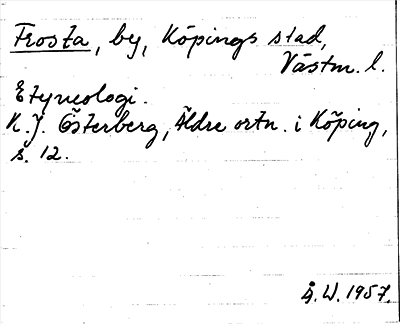 Frosta, by, Köpings stad,
Västm. l.
Etymologi.
K. J. Österberg, Äldre ortn. i Köping,
s. 12.
Å. W. 1957.